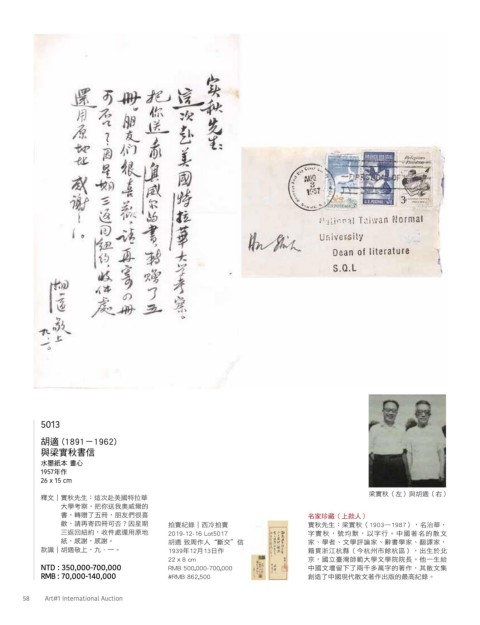 實秋先生:
這次赴美國特拉華大學考察。
把你送我奧威爾的書,轉贈了五
冊。朋友們很喜歡,請再寄四冊
可否?因星期三返回紐約,收件處
還用原地址,感謝!
胡適敬上
九.一.
AUG
3
1957
Religious
3c
National Taiwan Normal
University
Dean of literature
S.Q.L
5013
胡適 (1891－1962)
與梁實秋書信
水墨紙本 畫心
1957年作
26 x 15 cm
釋文｜實秋先生：這次赴美國特拉華
大學考察，把你送我奧威爾的
書，轉贈了五冊，朋友們很喜
歡，請再寄四冊可否？因星期
三返回紐約，收件處還用原地
紙，感謝，感謝。
款識｜胡適敬上，九．一。
NTD : 350,000-700,000
RMB : 70,000-140,000
拍賣紀錄｜西泠拍賣
2019-12-16 Lot5017
胡適 致周作人“斷交”信
1939年12月13日作
22 x 8 cm
RMB 500,000-700,000
#RMB 862,500
梁實秋（左）與胡適（右）
名家珍藏（上款人）
實秋先生：梁實秋（1903－1987），名治華，
字實秋，號均默，以字行，中國著名的散文
家、學者、文學評論家、辭書學家、翻譯家，
籍貫浙江杭縣（今杭州市餘杭區），出生於北
京，國立臺灣師範大學文學院院長。他一生給
中國文壇留下了兩千多萬字的著作，其散文集
創造了中國現代散文著作出版的最高紀錄。
58 Art#1 International Auction